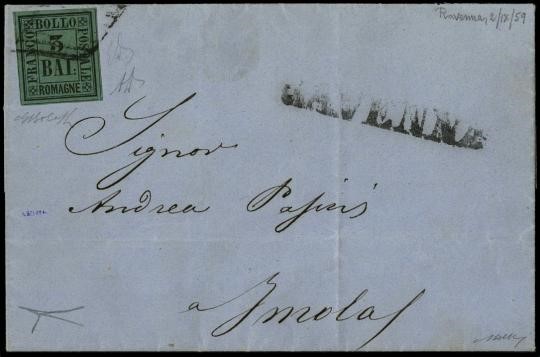 Ravenna, 2/IX/59
FRANCO BOLLO POSTALE
3
BAI.
ROMAGNE
RAVENNA
Signor
Andrea
a Imola